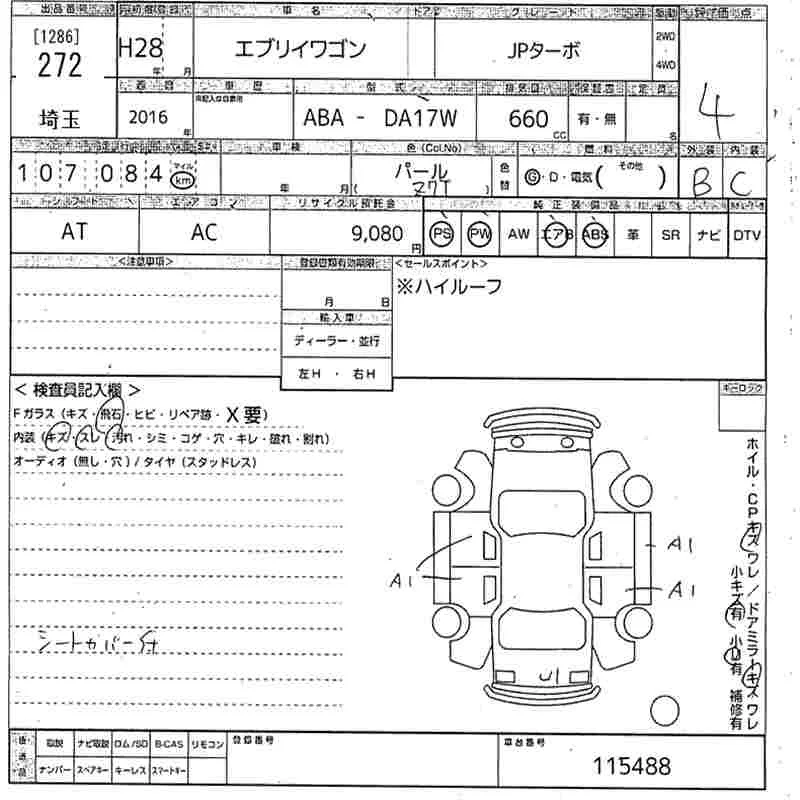 出品番号 初度登録 車名 ドア グレード 駆動 評価点
[1286]
272
H28 年 月
エブリイワゴン
JPターボ
2WD
4WD
4
埼玉
車歴 型式 排気量 定員
2016 年
ABA - DA17W
660 CC
有・無
名
車検 色 (Col.No) 燃料 外装 内装
107,084 マイル km
年 月
パール
Z7T
色替
G・D・電気( その他 )
B C
シフト エアコン リサイクル預託金 純正装備品
AT
AC
9,080 円
PS PW AW エアB ABS 革 SR ナビ DTV
<注意事項>
登録書類有効期限
月 日
輸入車
ディーラー・並行
左H ・ 右H
<セールスポイント>
※ハイルーフ
< 検査員記入欄 >
Fガラス (キズ・飛石・ヒビ・リペア跡・X要)
内装 (キズ・スレ・汚れ・シミ・コゲ・穴・キレ・破れ・割れ)
オーディオ (無し・穴) / タイヤ (スタッドレス)
シートカバー付
A1
A1
A1
U1
キーロック
ホイル・CPキズワレ/ドアミラーキズワレ
小キズ有 小凹有 補修有
後送品
取説 ナビ取説 ロム/SD B-CAS リモコン
ナンバー スペアキー キーレス スマートキー
登録番号
車台番号
115488